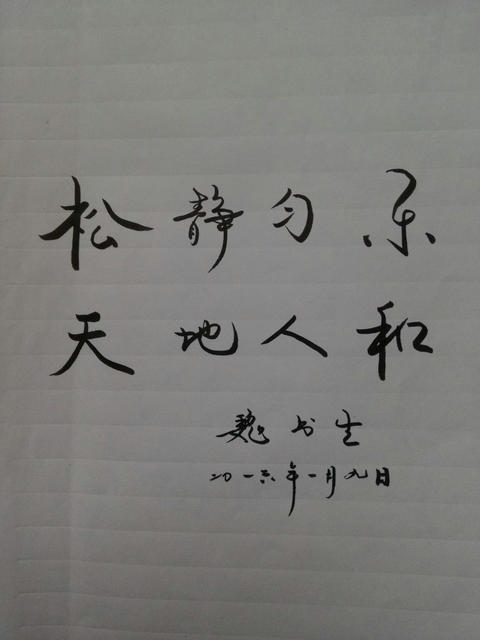 松静匀乐
天地人和
魏书生
二〇一六年一月九日